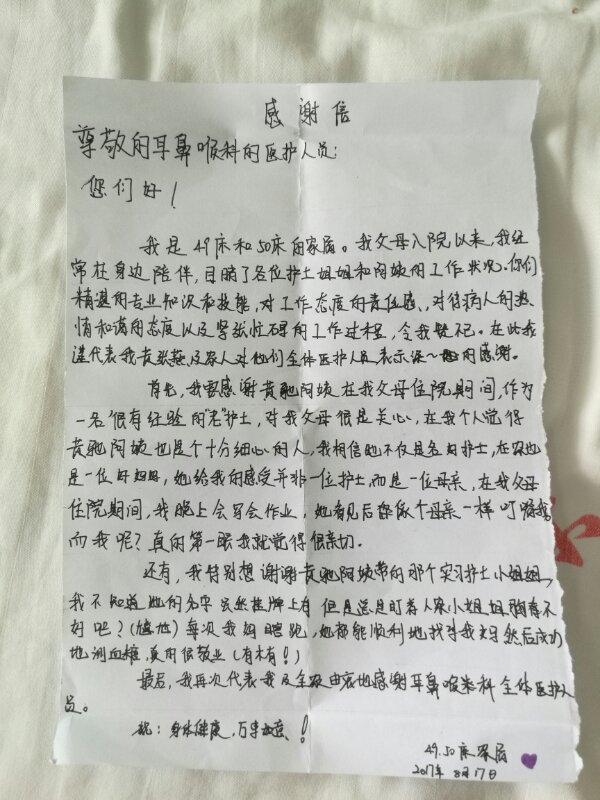 感谢信
尊敬的耳鼻喉科的医护人员:
您们好!
我是49床和50床的家属。我父母入院以来,我经
常在身边陪伴,目睹了各位护士姐姐和阿姨的工作状况。你们
精湛的专业知识和技能,对工作态度的责任感,对待病人的热
情和蔼的态度以及紧张忙碌的工作过程,令我难忘。在此我
谨代表我黄张燕及家人对他们全体医护人员表示深~的感谢。
首先,我要感谢黄驰阿姨在我父母住院期间,作为
一名很有经验的"老"护士,对我父母很是关心,在我个人觉得
黄驰阿姨也是个十分细心的人,我相信她不仅是名好护士,在家也
是一位好妈妈,她给我的感受并非一位护士,而是一位母亲,在我父母
住院期间,我晚上会写会作业,她看见后都像个母亲一样叮嘱我
而我呢?真的第一眼我就觉得很亲切。
还有,我特别想谢谢黄驰阿姨带的那个实习护士小姐姐,
我不知道她的名字 虽然挂牌上有 但是总是盯着人家小姐姐胸看不
好吧?(尴尬)每次我妈瞎跑,她都能顺利地找寻我妈然后成功
地测血糖,真的很敬业(有木有!)
最后,我再次代表我及全家由衷地感谢耳鼻喉科全体医护人
员。
祝:身体健康,万事如意!
49.50床家属
2017年8月17日